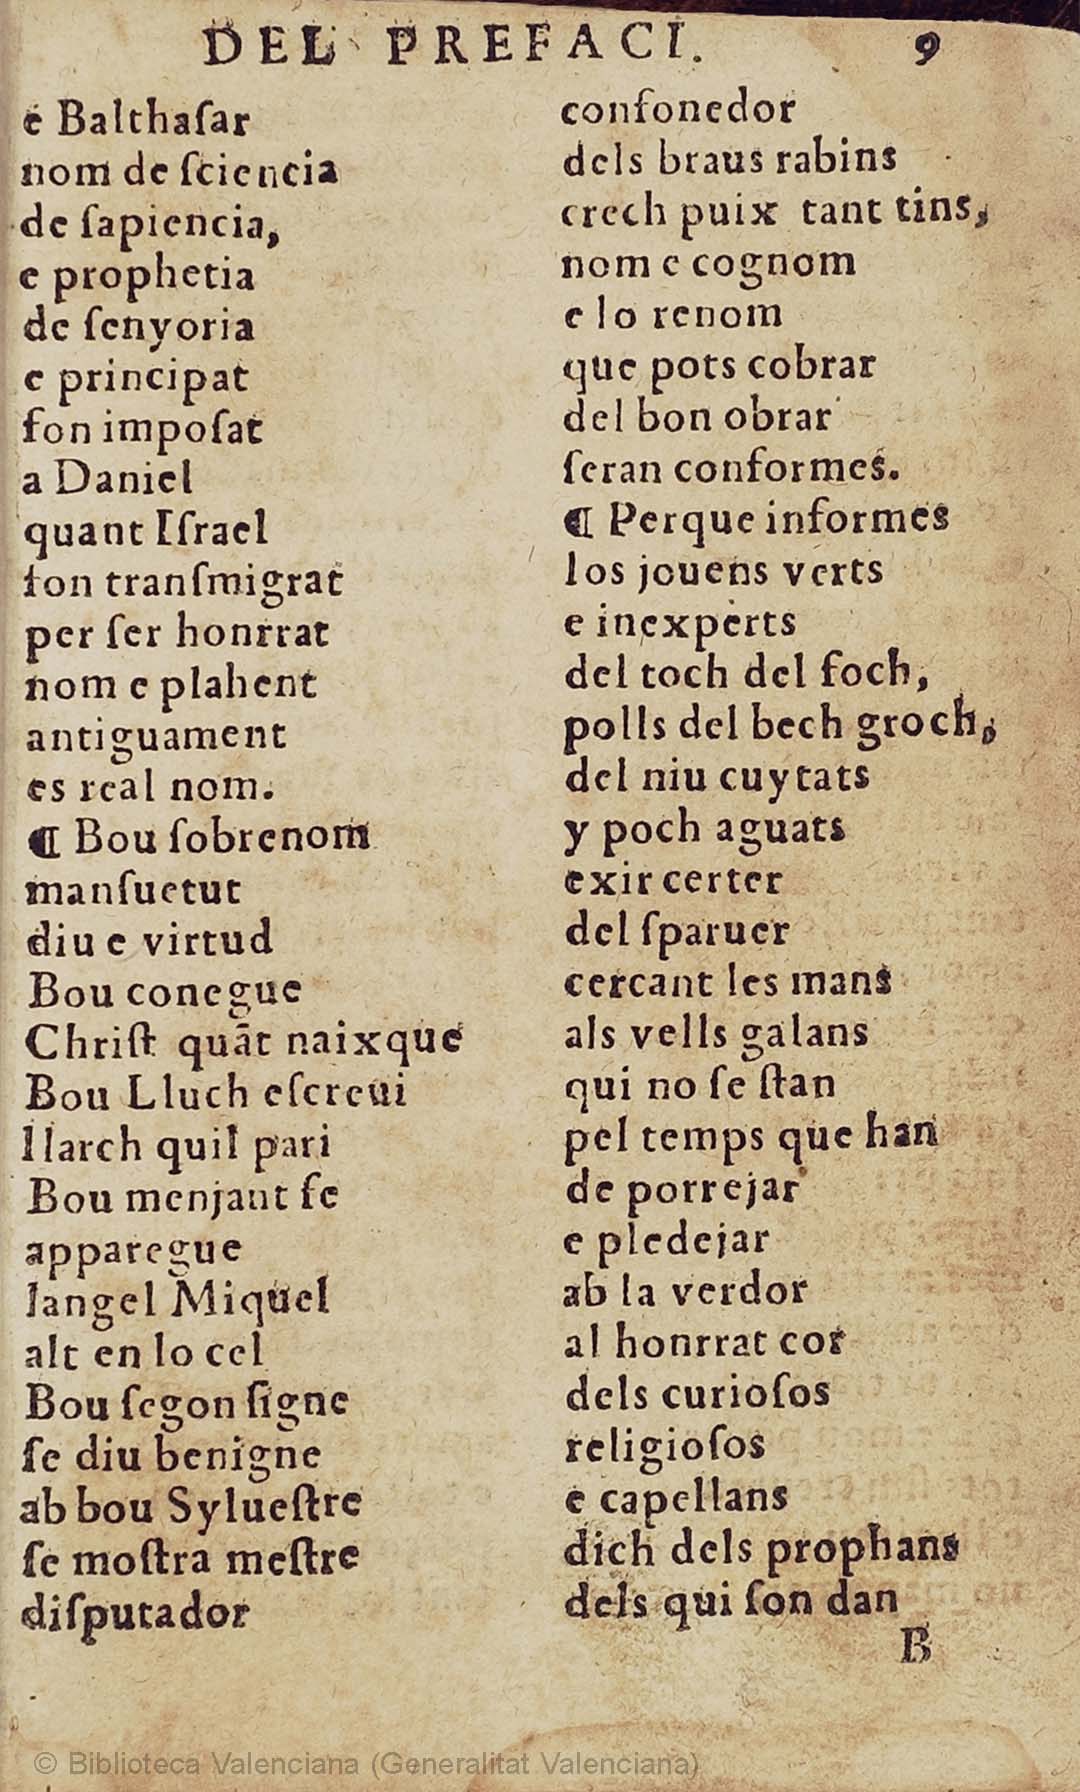 DEL PREFACI. 9
e Balthaſar
nom de ſciencia
de ſapiencia,
e prophetia
de ſenyoria
e principat
fon impoſat
a Daniel
quant Iſrael
fon tranſmigrat
per ſer honrrat
nom e plahent
antiguament
es real nom.
¶ Bou ſobrenom
manſuetut
diu e virtud
Bou conegue
Chriſt quãt naixque
Bou Lluch eſcreui
llarch quil pari
Bou menjant fe
apparegue
langel Miquel
alt en lo cel
Bou ſegon ſigne
ſe diu benigne
ab bou Sylueſtre
ſe moſtra meſtre
diſputador
confonedor
dels braus rabins
crech puix tant tins,
nom e cognom
e lo renom
que pots cobrar
del bon obrar
ſeran conformes.
¶ Perque informes
los jouens verts
e inexperts
del toch del foch,
polls del bech groch,
del niu cuytats
y poch aguats
exir certer
del ſparuer
cercant les mans
als vells galans
qui no ſe ſtan
pel temps que han
de porrejar
e pledejar
ab la verdor
al honrrat cor
dels curioſos
religioſos
e capellans
dich dels prophans
dels qui ſon dan
B
© Biblioteca Valenciana (Generalitat Valenciana)